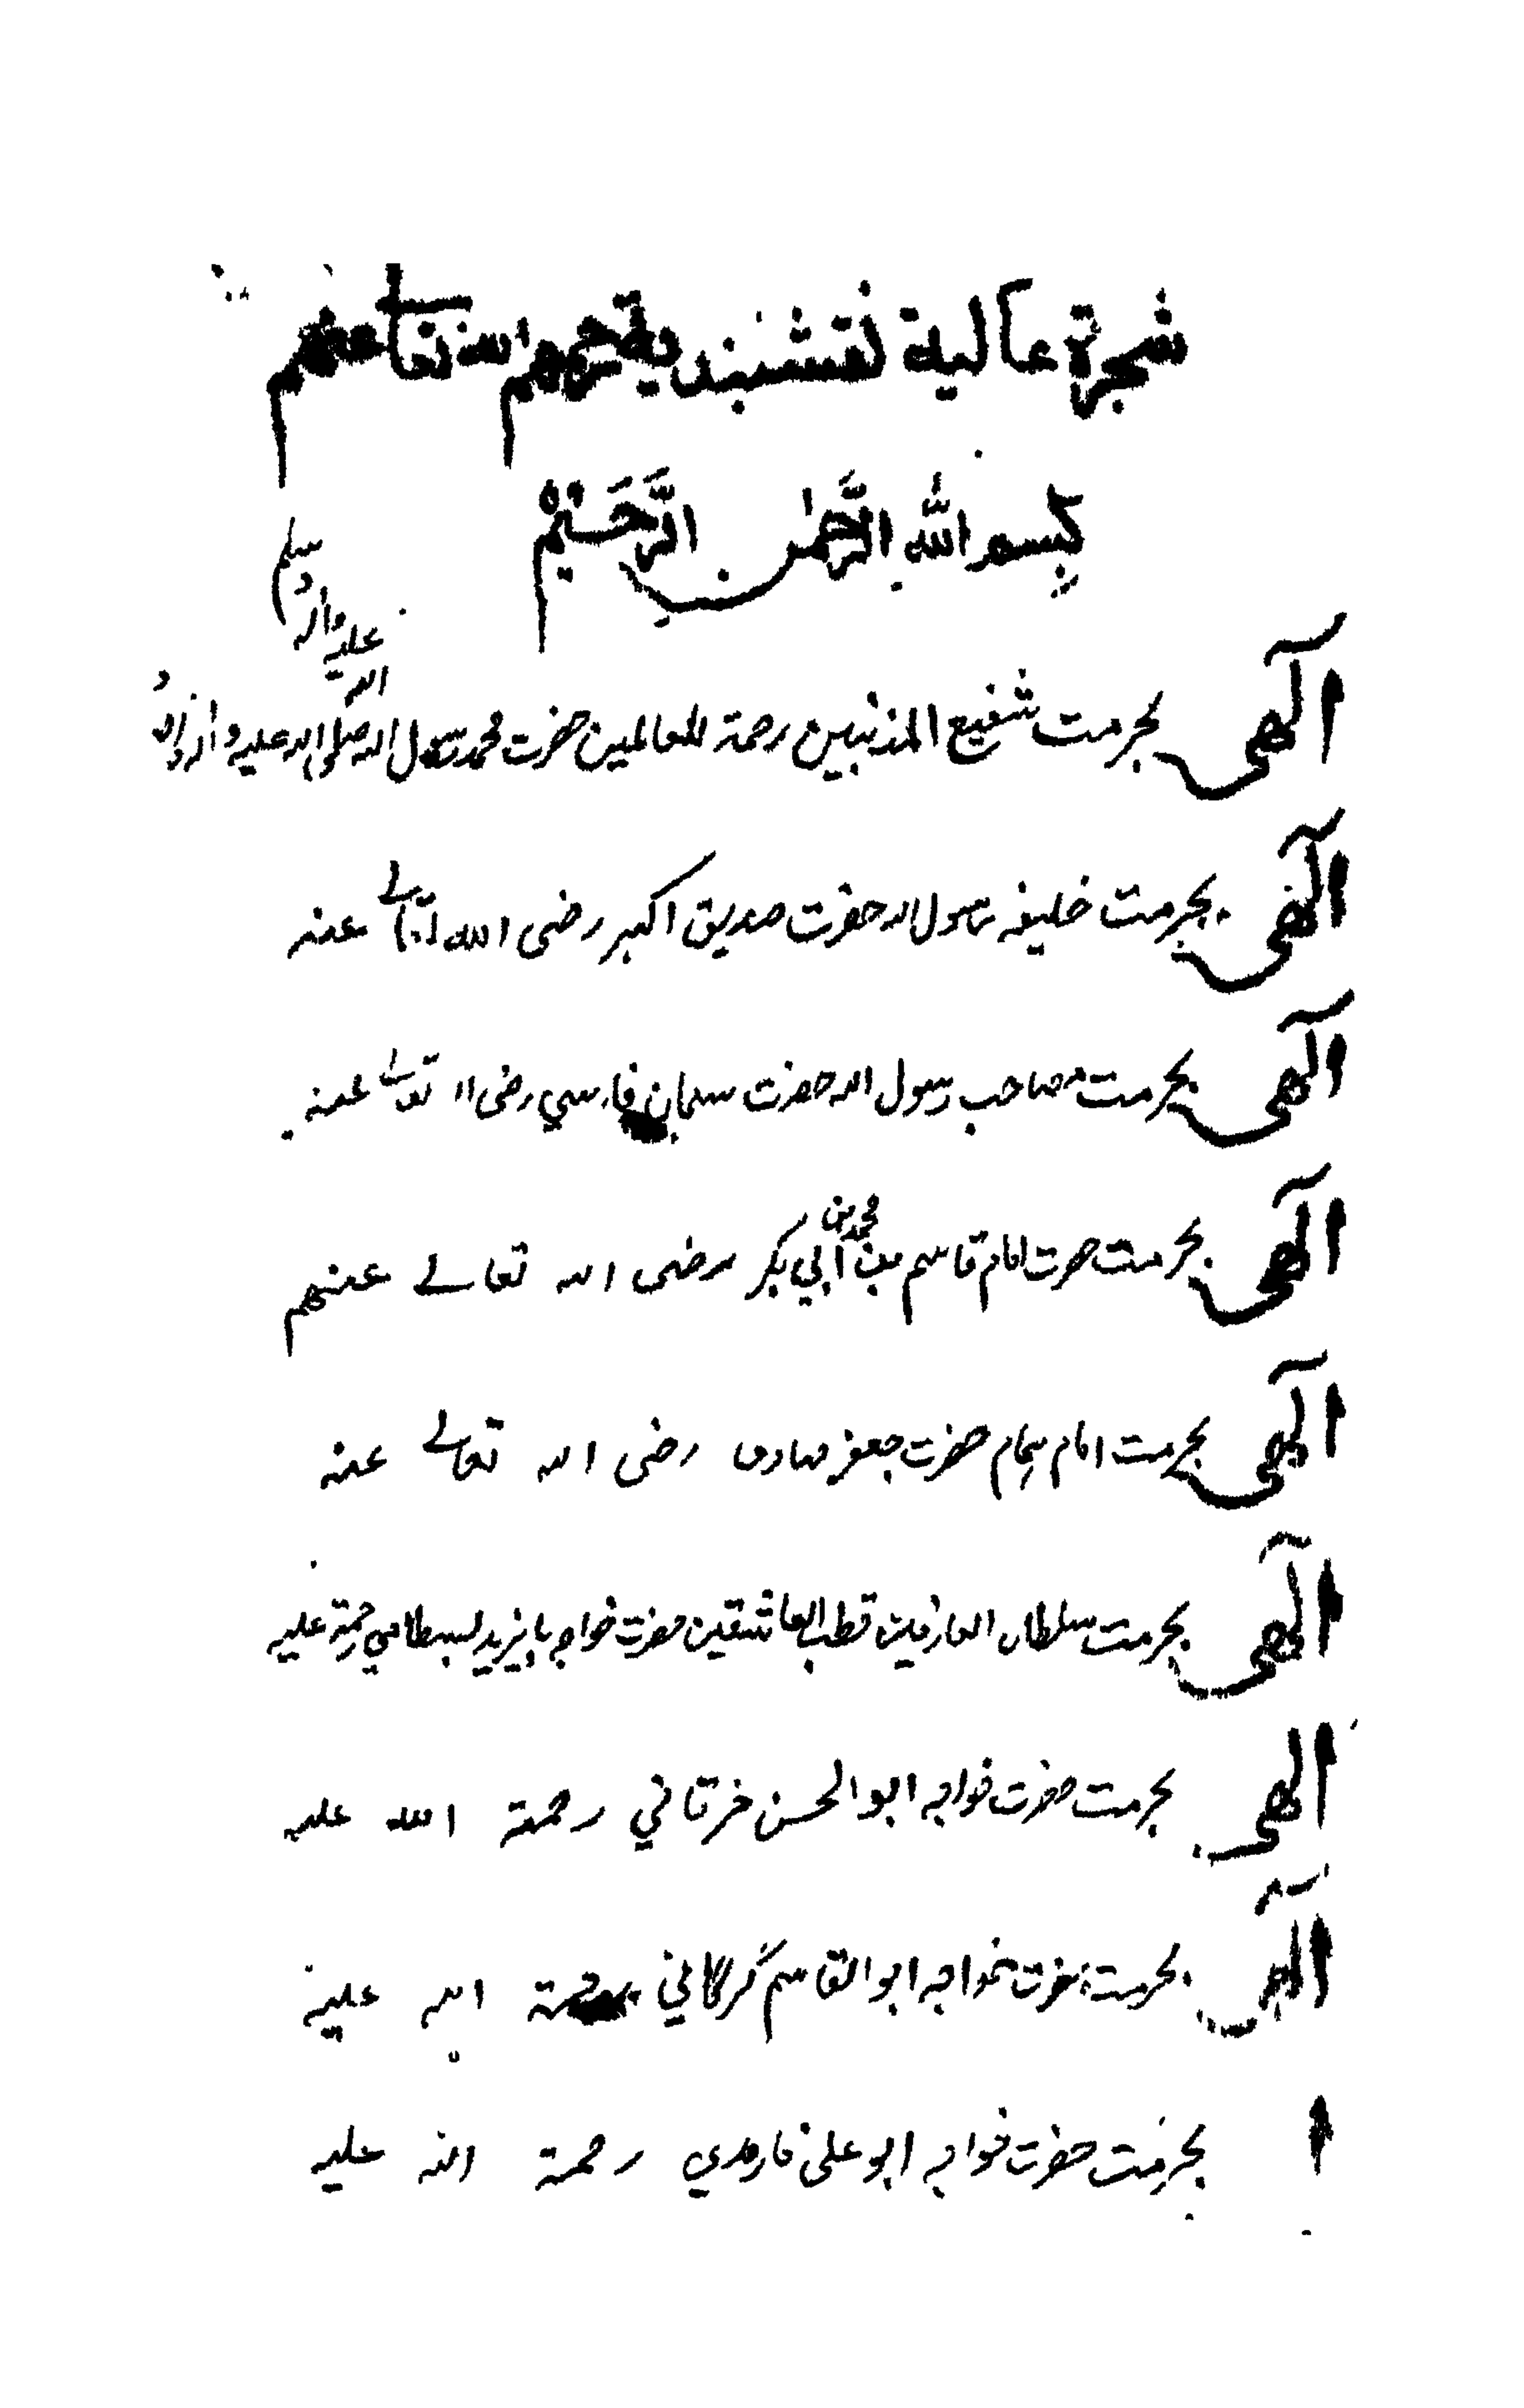 شجرة عالية نقشبندية رحمهم الله تعالى عنهم
بِسم اللّٰه الرَّحمٰن الرَّحيم
الٰهی بحرمت شفیع المذنبین رحمة للعالمین حضرت محمد رسول الله صلی الله علیه و
الله علیه واله وسلم
الٰهی بحرمت خلیفه رسول الله حضرت صدیق اکبر رضی الله تعالے عنه
الٰهی بحرمت مصاحب رسول الله حضرت سلمان فارسي رضی الله تعالے عنه
الٰهی بحرمت حضرت امام قاسم بن محمد بن أبي بكر رضی الله تعالے عنهم
الٰهی بحرمت امام حضرت جعفر صادق رضی الله تعالے عنه
الٰهی بحرمت سلطان العارفین قطب العاشقین حضرت خواجه بایزید بسطامي رحمة علیه
الهی بحرمت حضرت خواجه ابو الحسن خرقاني رحمة الله علیه
الٰهی بحرمت حضرت خواجه ابو القاسم گرگاني رحمة الله علیه
بحرمت حضرت خواجه ابو علی فارمدي رحمة الله علیه